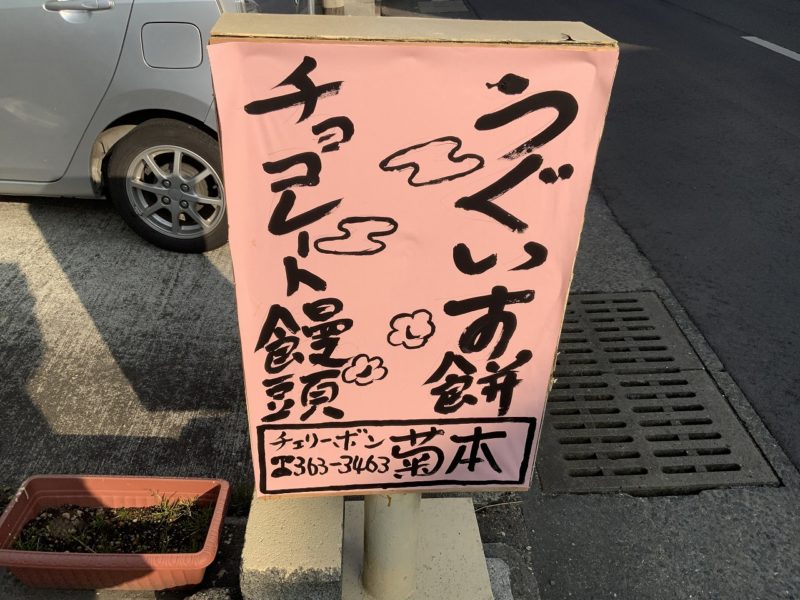 うぐいす餅
チョコレート饅頭
チェリーボン
☎363-3463
菊本